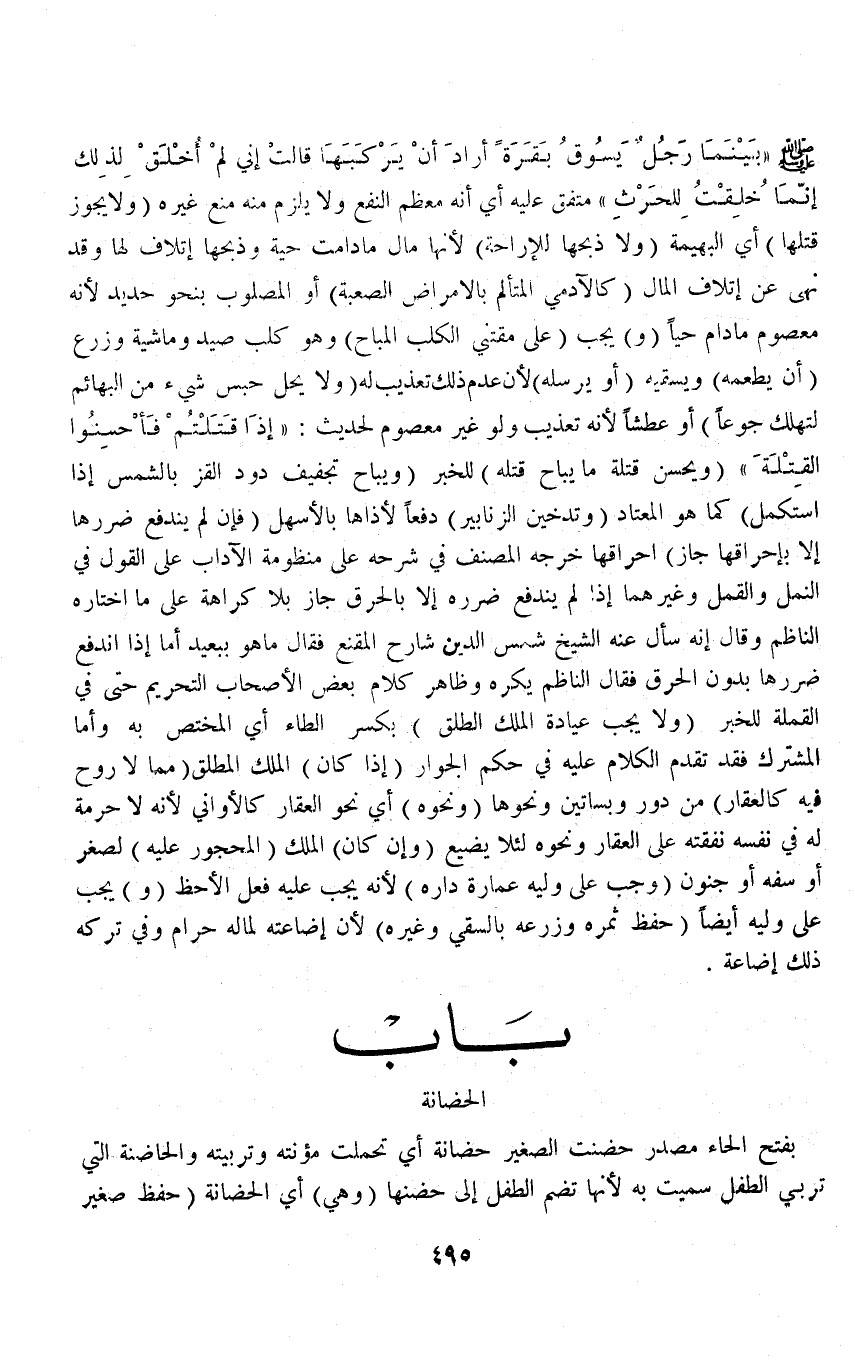 ﷺ « بَيْنَمَا رَجُلٌ يَسُوقُ بَقَرَةً أرادَ أنْ يَرْكَبَهَا قالتْ إني لمْ أُخْلَقْ لِذلِك
إنّمَا خُلِقْتُ لِلحَرْثِ » متفق عليه أي أنه معظم النفع ولا يلزم منه منع غيره ( ولايجوز
قتلها ) أي البهيمة ( ولا ذبحها للإراحة ) لأنها مال مادامت حية وذبحها إتلاف لها وقد
نهى عن إتلاف المال ( كالآدمي المتألم بالامراض الصعبة ) أو المصلوب بنحو حديد لأنه
معصوم مادام حياً ( و ) يجب ( على مقتني الكلب المباح ) وهو كلب صيد وماشية وزرع
( أن يطعمه ) ويسقيه ( أو يرسله ) لأن عدم ذلك تعذيب له ( ولا يحل حبس شيء من البهائم
لتهلك جوعاً ) أو عطشاً لأنه تعذيب ولو غير معصوم لحديث : « إذَا قَتَلْتُمْ فَأحْسِنُوا
القِتْلَةَ » ( ويحسن قتلة ما يباح قتله ) للخبر ( ويباح تجفيف دود القز بالشمس إذا
استكمل ) كما هو المعتاد ( وتدخين الزنابير ) دفعاً لأذاها بالأسهل ( فإن لم يندفع ضررها
إلا بإحراقها جاز ) احراقها خرجه المصنف في شرحه على منظومة الآداب على القول في
النمل والقمل وغيرهما إذا لم يندفع ضرره إلا بالحرق جاز بلا كراهة على ما اختاره
الناظم وقال إنه سأل عنه الشيخ شمس الدين شارح المقنع فقال ماهو ببعيد أما إذا اندفع
ضررها بدون الحرق فقال الناظم يكره وظاهر كلام بعض الأصحاب التحريم حتى في
القملة للخبر ( ولا يجب عيادة الملك الطلق ) بكسر الطاء أي المختص به وأما
المشترك فقد تقدم الكلام عليه في حكم الجوار ( إذا كان ) الملك المطلق ( مما لا روح
فيه كالعقار ) من دور وبساتين ونحوها ( ونحوه ) أي نحو العقار كالأواني لأنه لا حرمة
له في نفسه نفقته على العقار ونحوه لئلا يضيع ( وإن كان ) الملك ( المحجور عليه ) لصغر
أو سفه أو جنون ( وجب على وليه عمارة داره ) لأنه يجب عليه فعل الأحظ ( و ) يجب
على وليه أيضاً ( حفظ ثمره وزرعه بالسقي وغيره ) لأن إضاعته لماله حرام وفي تركه
ذلك إضاعة .
بَابْ
الحضانة
بفتح الحاء مصدر حضنت الصغير حضانة أي تحملت مؤنته وتربيته والحاضنة التي
تربي الطفل سميت به لأنها تضم الطفل إلى حضنها ( وهي ) أي الحضانة ( حفظ صغير
٤٩٥